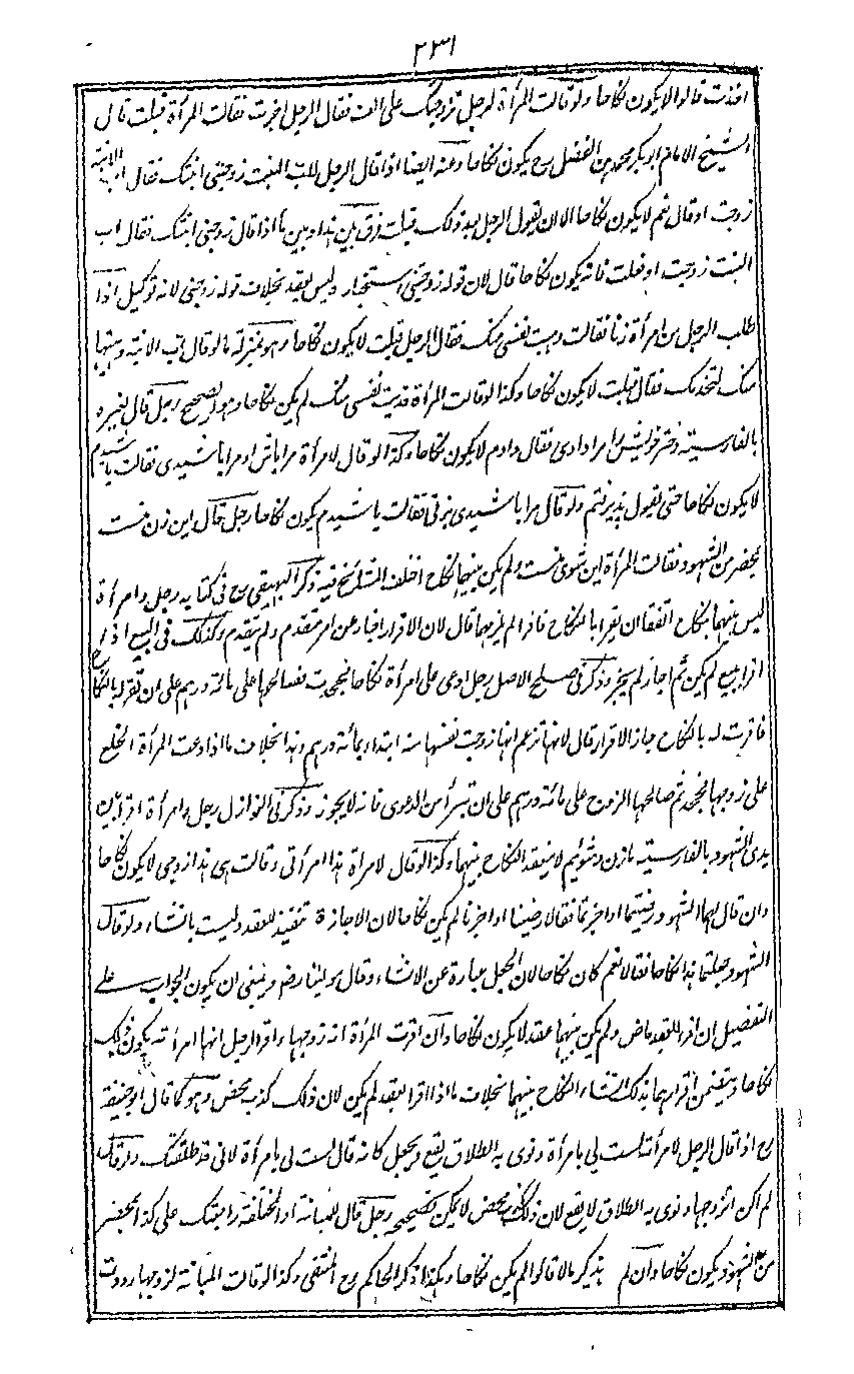 ٢٣١
انفذت قالوا لا يكون نكاحا ولو قالت المرأة لرجل تزوجتك على الف فقال الرجل اجزت فقالت المرأة قبلت قال
الشيخ الامام ابو بكر محمد بن الفضل رح يكون نكاحا وعنه ايضا اذا قال الرجل لاب البنت زوجتنى ابنتك فقال اب الابنة
زوجت او قال نعم لا يكون نكاحا الا ان يقول الرجل بعد ذلك قبلت فرق بين هذا وبين ما اذا قال زوجنى ابنتك فقال اب
البنت زوجت او فعلت فانه يكون نكاحا قال لان قوله زوجتنى استخبار وليس بعقد بخلاف قوله زوجنى لانه توكيل اذا
طلب الرجل من امرأة زنا فقالت وهبت نفسى منك فقال الرجل قبلت لا يكون نكاحا وهو بمنزلة ما لو قال اب الابنة وهبتها
منك لتخدمك فقال قبلت لا يكون نكاحا وكذا لو قالت المرأة فديت نفسى منك لم يكن نكاحا وهو الصحيح رجل قال لغيره
بالفارسية دختر خويش را مرا دادى فقال دادم لا يكون نكاحا وكذا لو قال لامرأة مرا باش او مرا باشيدى فقالت باشيدم
لا يكون نكاحا حتى يقول پذيرفتم ولو قال مرا باشيدى بزنى فقالت باشيدم يكون نكاحا رجل قال اين زن منست
بحضر من الشهود فقالت المرأة اين شوى منست ولم يكن بينهما نكاح اختلف المشايخ فيه ذكر البيهقى رح فى كتابه رجل وامرأة
ليس بينهما نكاح اتفقا ان يقرا بالنكاح فاقرا لم يلزمهما قال لان الاقرار اخبار عن امر متقدم ولم يتقدم وكذلك فى البيع اذا
اقرا ببيع لم يكن ثم اجاز لم يجز وذكر فى صلح الاصل رجل ادعى على امرأة نكاحا فجحدت فصالحها على مائة درهم على ان تقر له بالنكاح
فاقرت له بالنكاح جاز الاقرار قال لانها تزعم انها زوجت نفسها منه ابتداء بمائة درهم وهذا بخلاف ما اذا ادعت المرأة الخلع
على زوجها فجحد ثم صالحها الزوج على مائة درهم على ان تبرأ من الدعوى فانه لا يجوز وذكر فى النوازل رجل وامرأة اقرا بين
يدى الشهود بالفارسية ما زن وشوئيم لا ينعقد النكاح بينهما وكذا لو قال لامرأة هذا امرأتى وقالت هى هذا زوجى لا يكون نكاحا
وان قال لهما الشهود رضيتما او اجزتما فقالا رضينا او اجزنا لم يكن نكاحا لان الاجازة تنفيذ للعقد وليست بانشاء ولو قال
الشهود جعلتما هذا نكاحا فقالا نعم كان نكاحا لان الجعل عبارة عن الانشاء وقال مولينا رضـ وينبغى ان يكون الجواب على
التفصيل ان اقرا بعقد ماض ولم يكن بينهما عقد لا يكون نكاحا وان اقرت المرأة انه زوجها واقر الرجل انها امرأته يكون ذلك
نكاحا ويتضمن اقرارهما بذلك انشاء النكاح بينهما بخلاف ما اذا اقرا بعقد لم يكن لان ذلك كذب محض وهو كما قال ابو حنيفة
رح اذا قال الرجل لامرأته لست لى بامرأة ونوى به الطلاق يقع ويجعل كانه قال لست لى بامرأة لانى قد طلقتك ولو قال
لم اكن اتزوجها ونوى به الطلاق لا يقع لان ذلك كذب محض لا يمكن تصحيحه رجل قال للمبانة او المختلعة راجعتك على كذا بحضر
من الشهود يكون نكاحا وان لم يذكر مالا قالوا لم يكن نكاحا وهكذا ذكر الحاكم رح المنتقى وكذا لو قالت المبانة لزوجها رددت